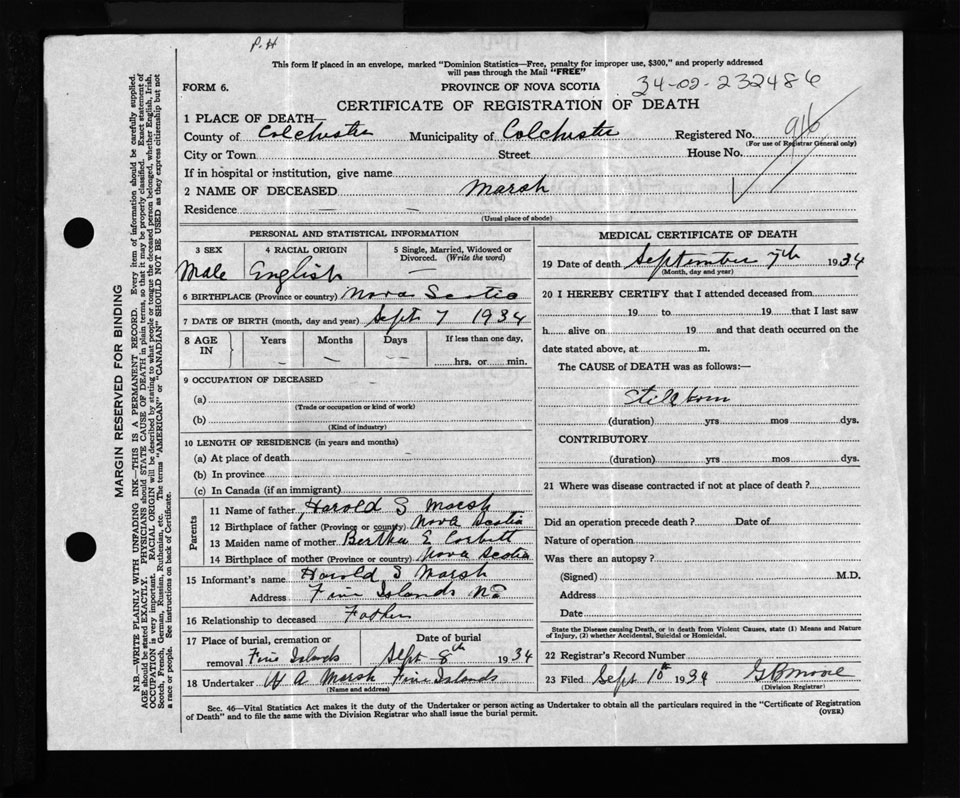 P.H
This form if placed in an envelope, marked "Dominion Statistics—Free, penalty for improper use, $300," and properly addressed
will pass through the Mail "FREE"
FORM 6. PROVINCE OF NOVA SCOTIA 34-02-232486
CERTIFICATE OF REGISTRATION OF DEATH
1 PLACE OF DEATH—
County of Colchester Municipality of Colchester Registered No. 916
(For use of Registrar General only)
City or Town Street House No.
If in hospital or institution, give name
2 NAME OF DECEASED Marsh
Residence — —
(Usual place of abode)
PERSONAL AND STATISTICAL INFORMATION
3 SEX 4 RACIAL ORIGIN 5 Single, Married, Widowed or
Divorced. (Write the word)
Male English —
6 BIRTHPLACE (Province or country) Nova Scotia
7 DATE OF BIRTH (month, day and year) Sept 7 1934
8 AGE IN Years Months Days If less than one day,
— — — hrs. or min.
9 OCCUPATION OF DECEASED
(a)
(Trade or occupation or kind of work)
(b)
(Kind of industry)
10 LENGTH OF RESIDENCE (in years and months)
(a) At place of death
(b) In province
(c) In Canada (if an immigrant)
Parents
11 Name of father, Harold S Marsh
12 Birthplace of father (Province or country) Nova Scotia
13 Maiden name of mother Bertha E Corbett
14 Birthplace of mother (Province or country) Nova Scotia
15 Informant's name Harold S Marsh
Address Five Islands NS
16 Relationship to deceased Father
17 Place of burial, cremation or Date of burial
removal Five Islands Sept 8th 1934
18 Undertaker W A Marsh Five Islands
(Name and address)
MEDICAL CERTIFICATE OF DEATH
19 Date of death September 7th 1934
(Month, day and year)
20 I HEREBY CERTIFY that I attended deceased from
19 to 19 that I last saw
h alive on 19 and that death occurred on
date stated above, at m.
The CAUSE of DEATH was as follows:—
Stillborn
(duration) yrs mos dys.
CONTRIBUTORY
(duration) yrs mos dys.
21 Where was disease contracted if not at place of death?
Did an operation precede death? Date of
Nature of operation
Was there an autopsy?
(Signed) M.D.
Address
Date
State the Disease causing Death, or in death from Violent Causes, state (1) Means and Nature
of Injury, (2) whether Accidental, Suicidal or Homicidal.
22 Registrar's Record Number
23 Filed Sept 10 1934 G B Moore
(Division Registrar)
Sec. 46—Vital Statistics Act makes it the duty of the Undertaker or person acting as Undertaker to obtain all the particulars required in the "Certificate of Registration
of Death" and to file the same with the Division Registrar who shall issue the burial permit. (OVER)
MARGIN RESERVED FOR BINDING
N.B.—WRITE PLAINLY WITH UNFADING INK—THIS IS A PERMANENT RECORD. Every item of information should be carefully supplied.
AGE should be stated EXACTLY. PHYSICIANS should STATE CAUSE OF DEATH in plain terms, so that it may be properly classified. Exact statement of
OCCUPATION is very important. RACIAL ORIGIN will be described by stating to what people or tongue the deceased person belonged, whether English, Irish,
Scotch, French, German, Russian, Ruthenian, etc. The terms "AMERICAN" or "CANADIAN" SHOULD NOT BE USED as they express citizenship but not
a race or people. See instructions on back of Certificate.